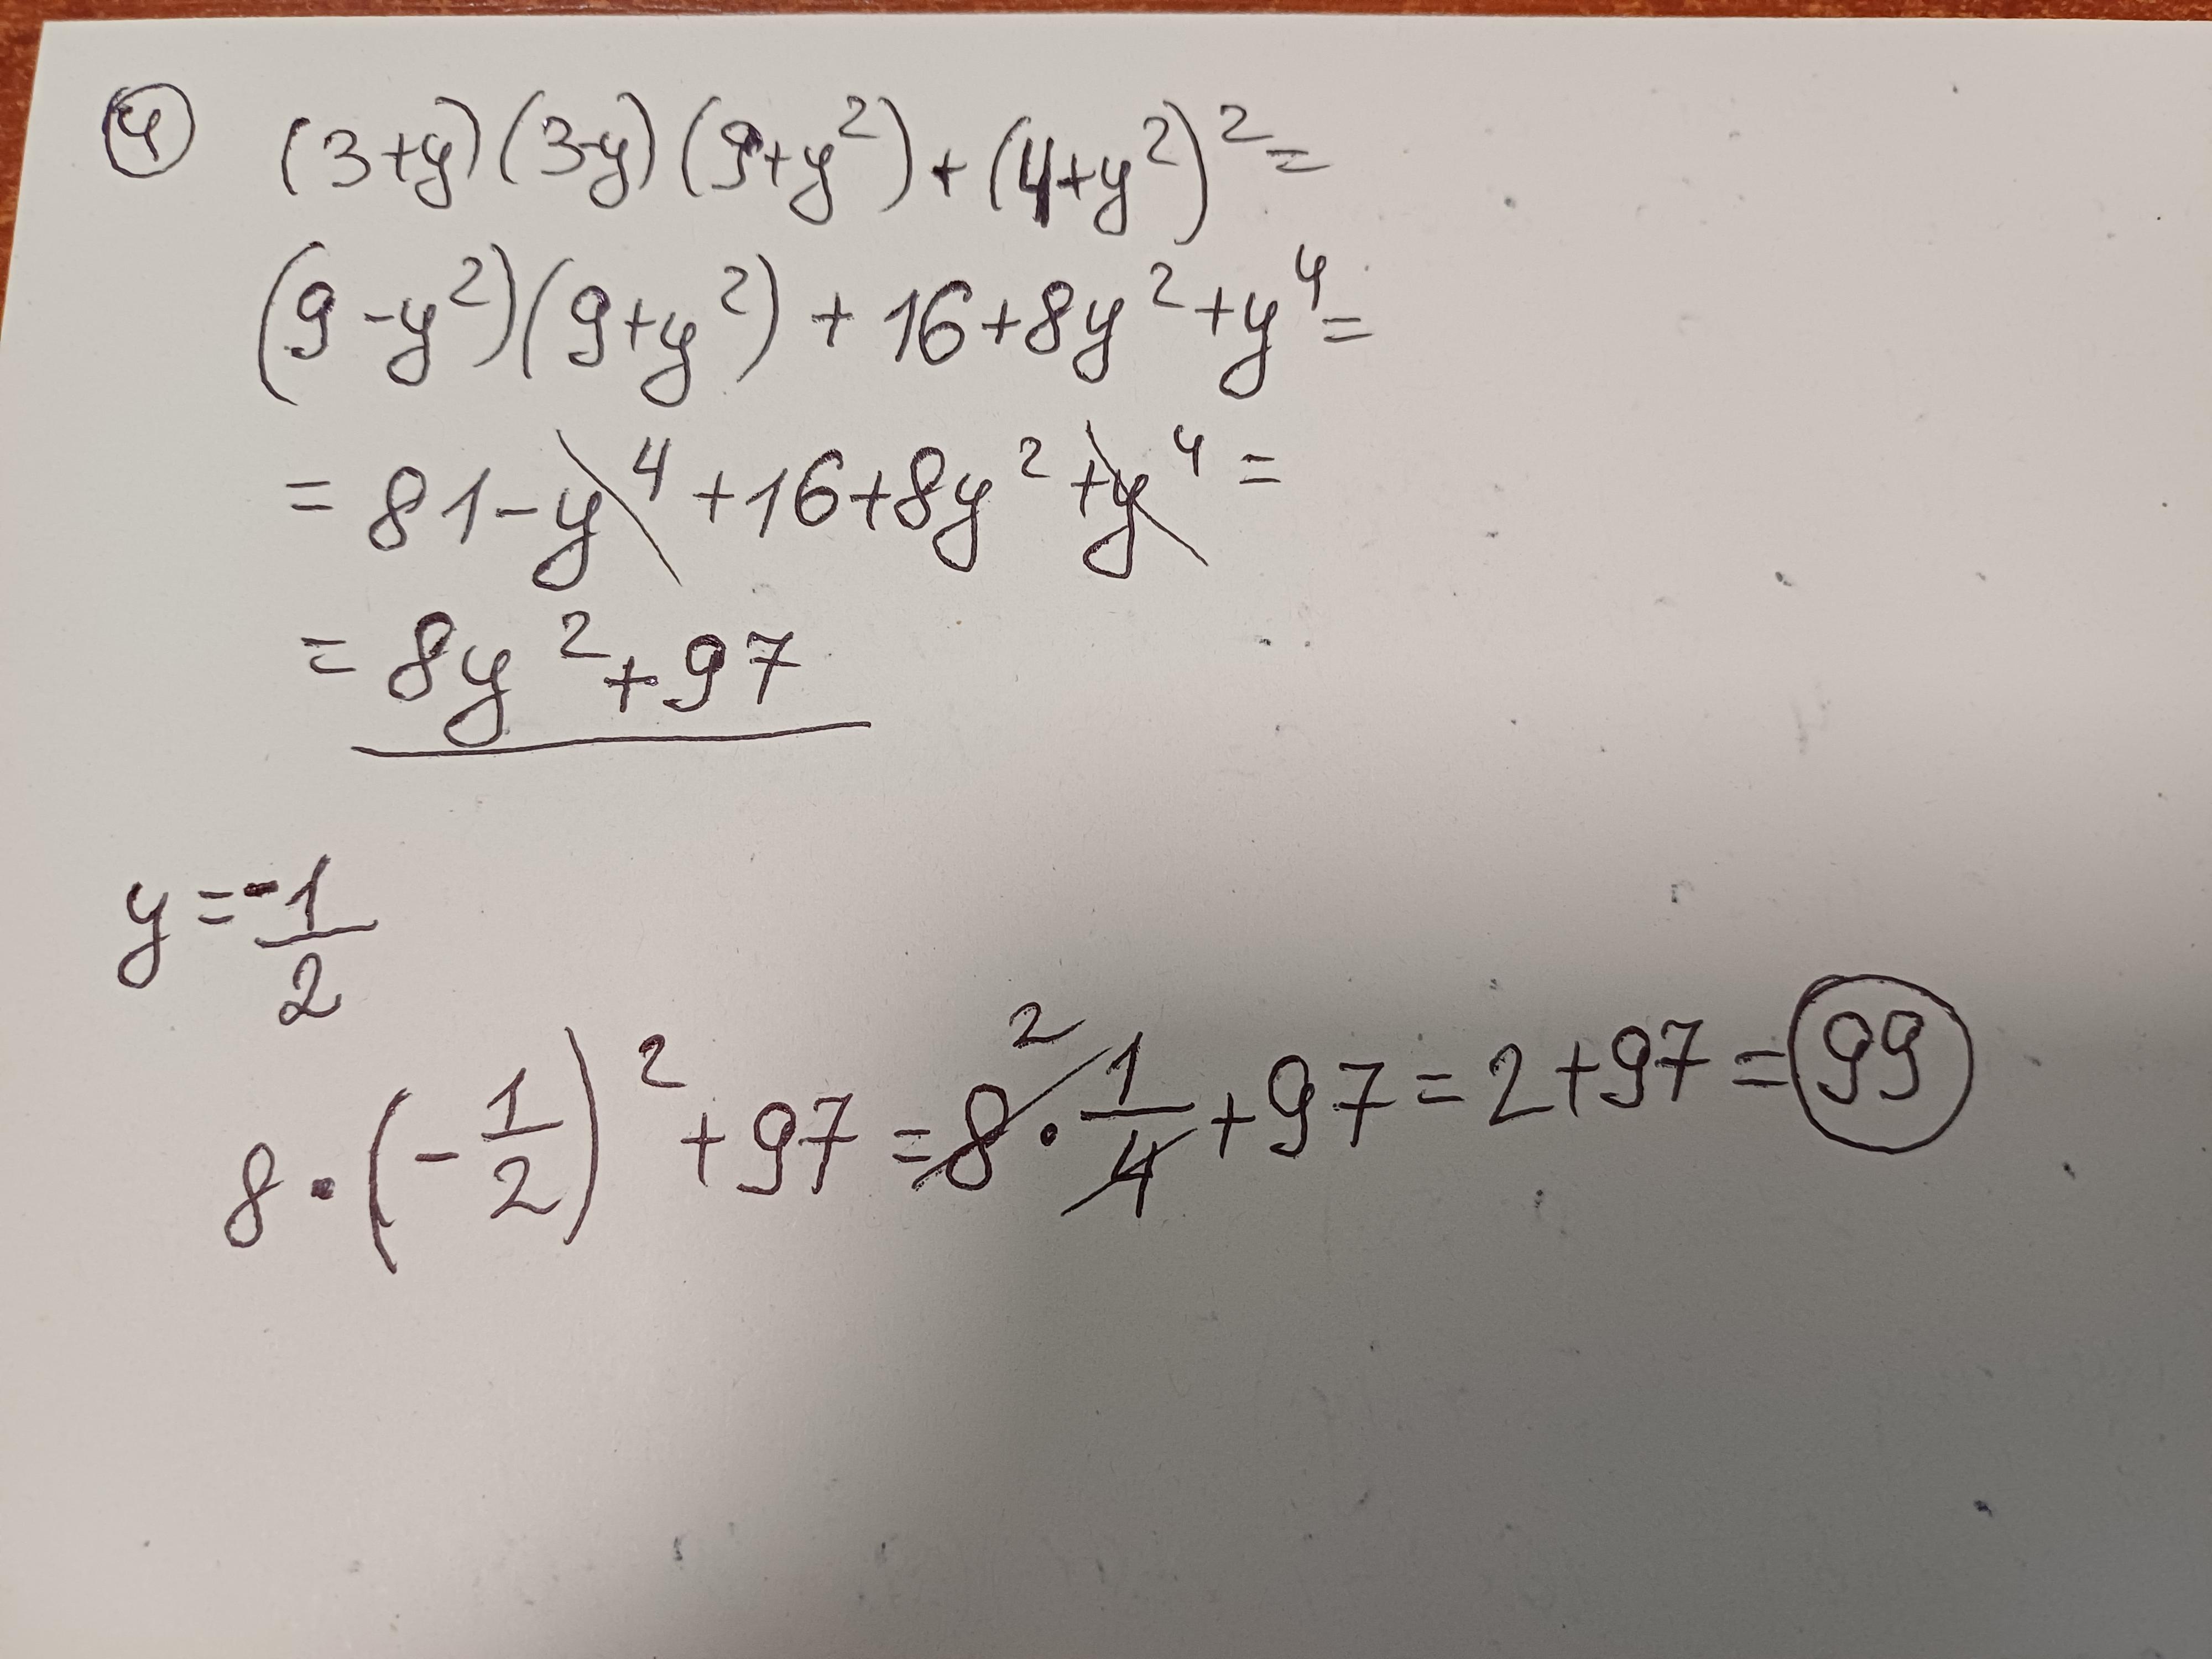 ④ (3+y)(3-y)(9+y²)+(4+y²)²=
(9-y²)(9+y²)+16+8y²+y⁴=
=81-y⁴+16+8y²+y⁴=
=8y²+97
y=-1/2
8·(-1/2)²+97=8·1/4+97=2+97=99